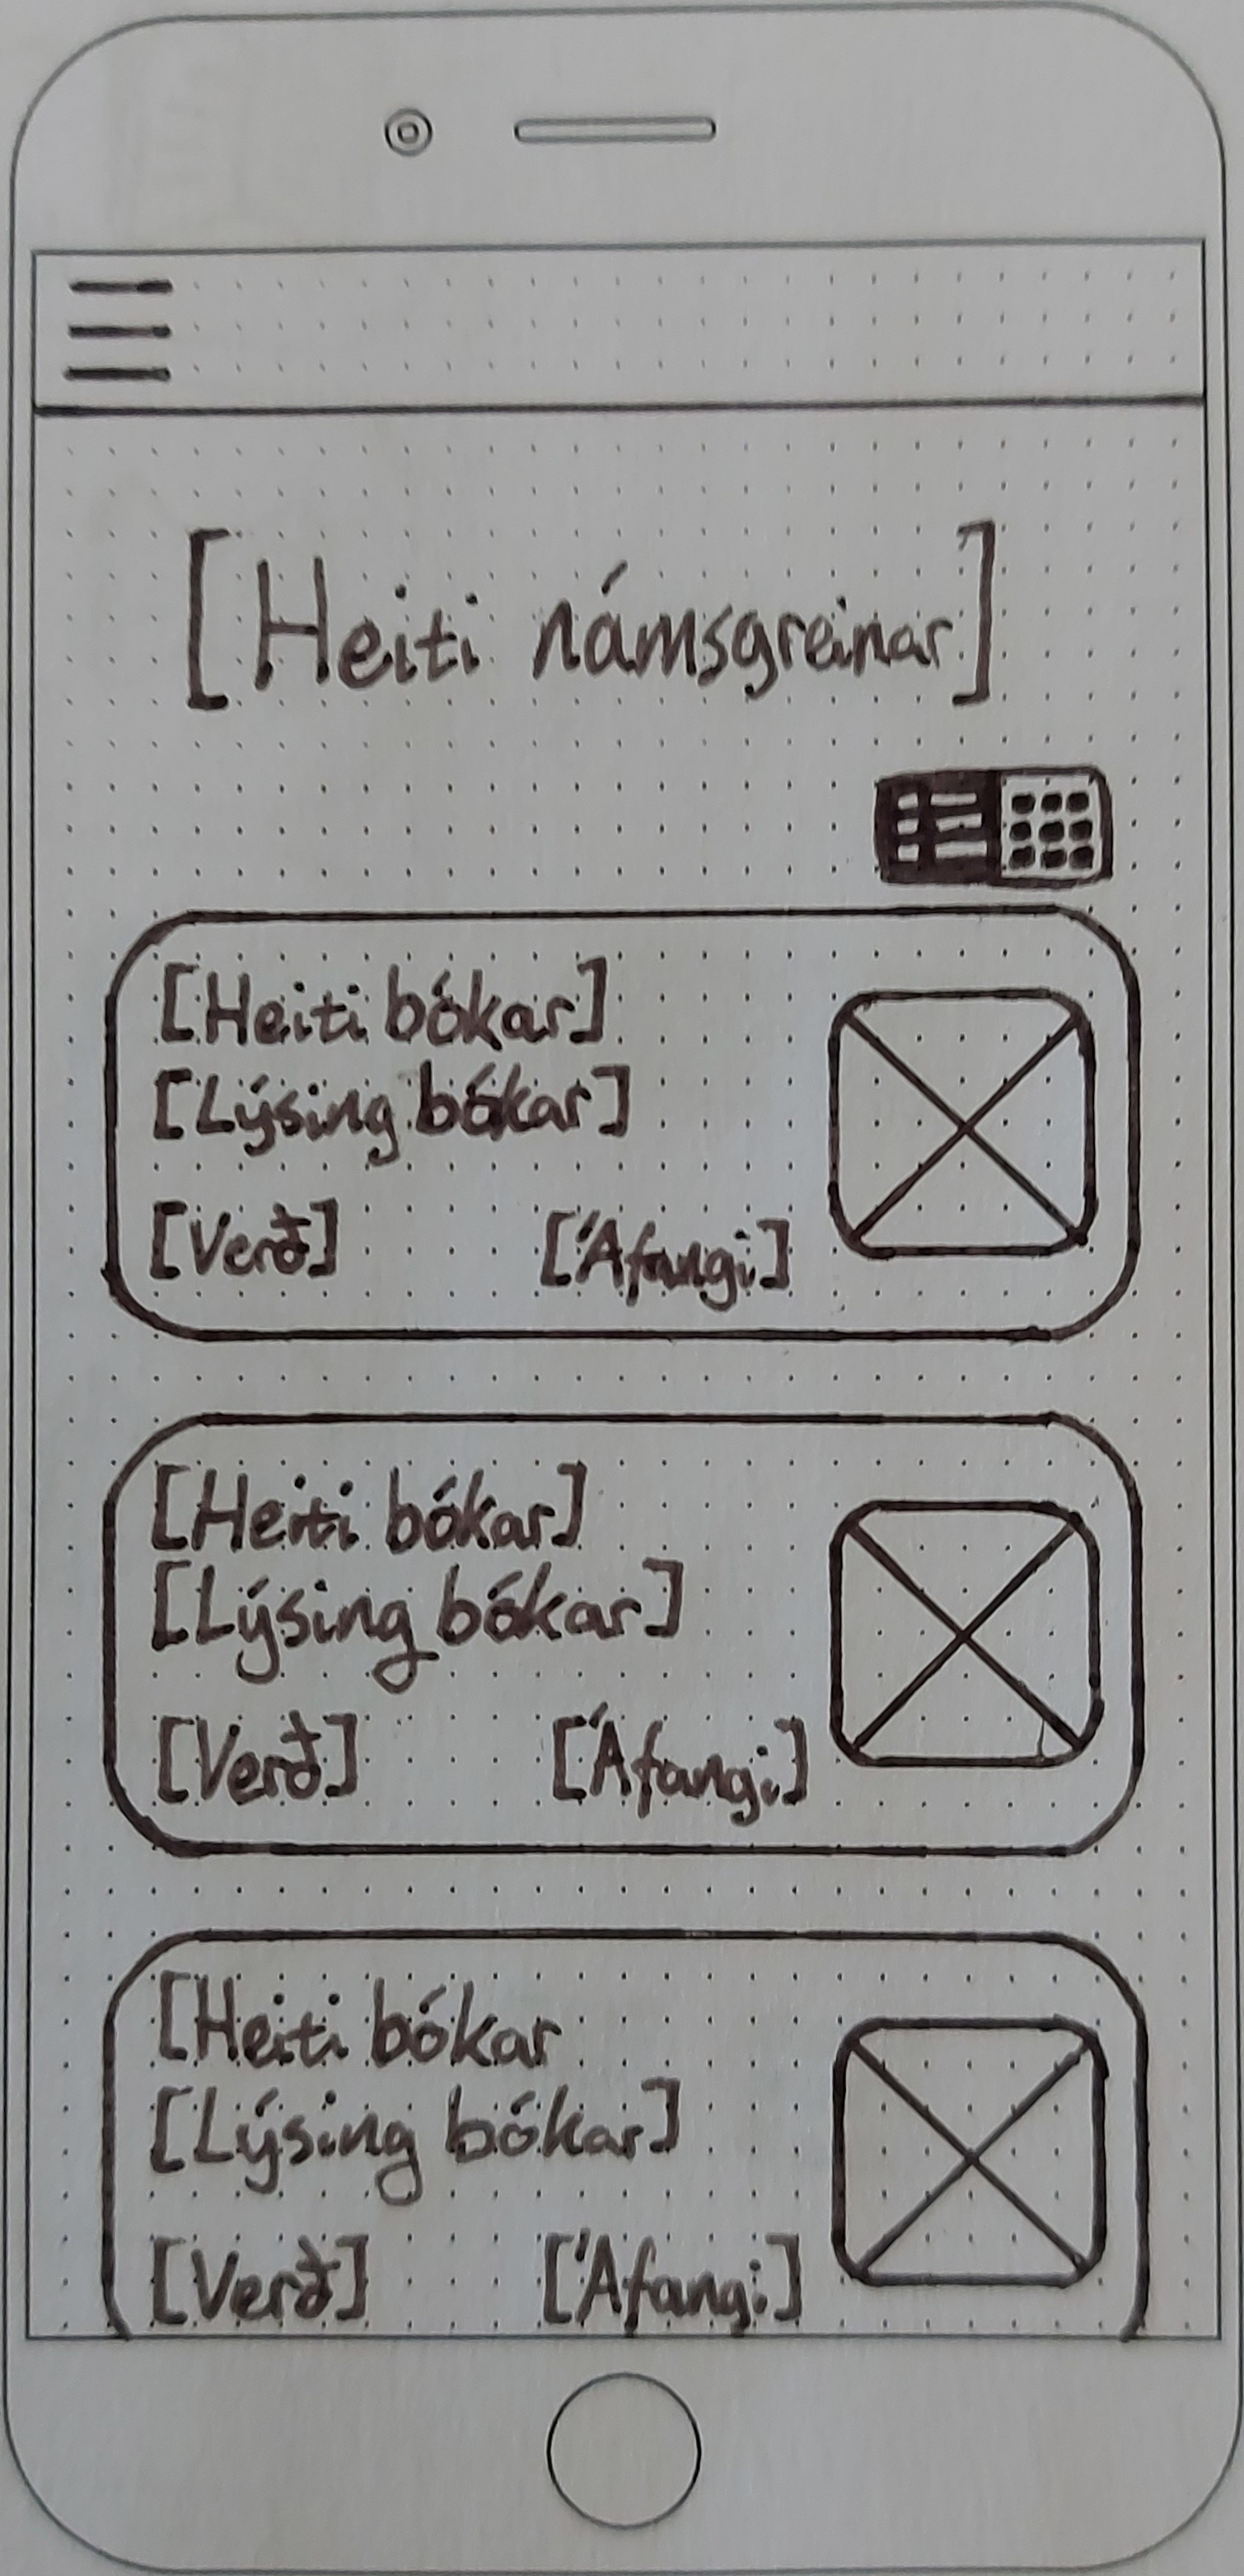 [Heiti námsgreinar]
[Heiti bókar]
[Lýsing bókar]
[Verð] [Áfangi]
[Heiti bókar]
[Lýsing bókar]
[Verð] [Áfangi]
[Heiti bókar
[Lýsing bókar]
[Verð] [Áfangi]